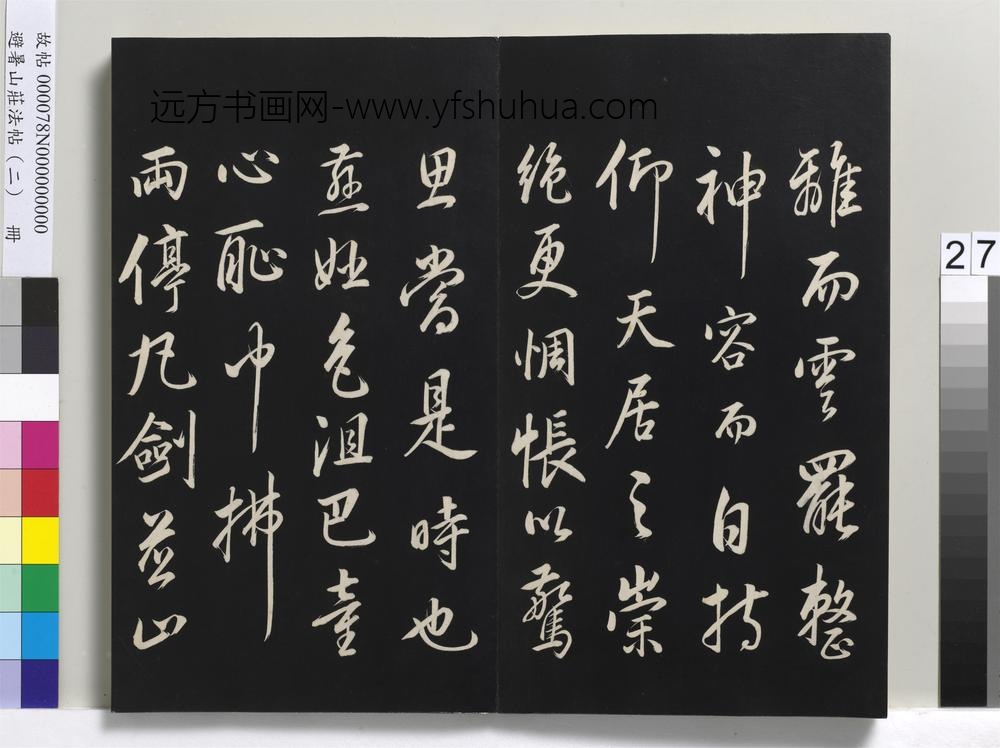 远方书画网-www.yfshuhua.com
離而雲罷整
神容而自持
仰天居之崇
絶更惆悵以驚
思當是時也
燕姬色沮巴童
心恥巾拂
兩停丸劍並止
故帖 000078N000000000
避暑山莊法帖（二） 冊
27